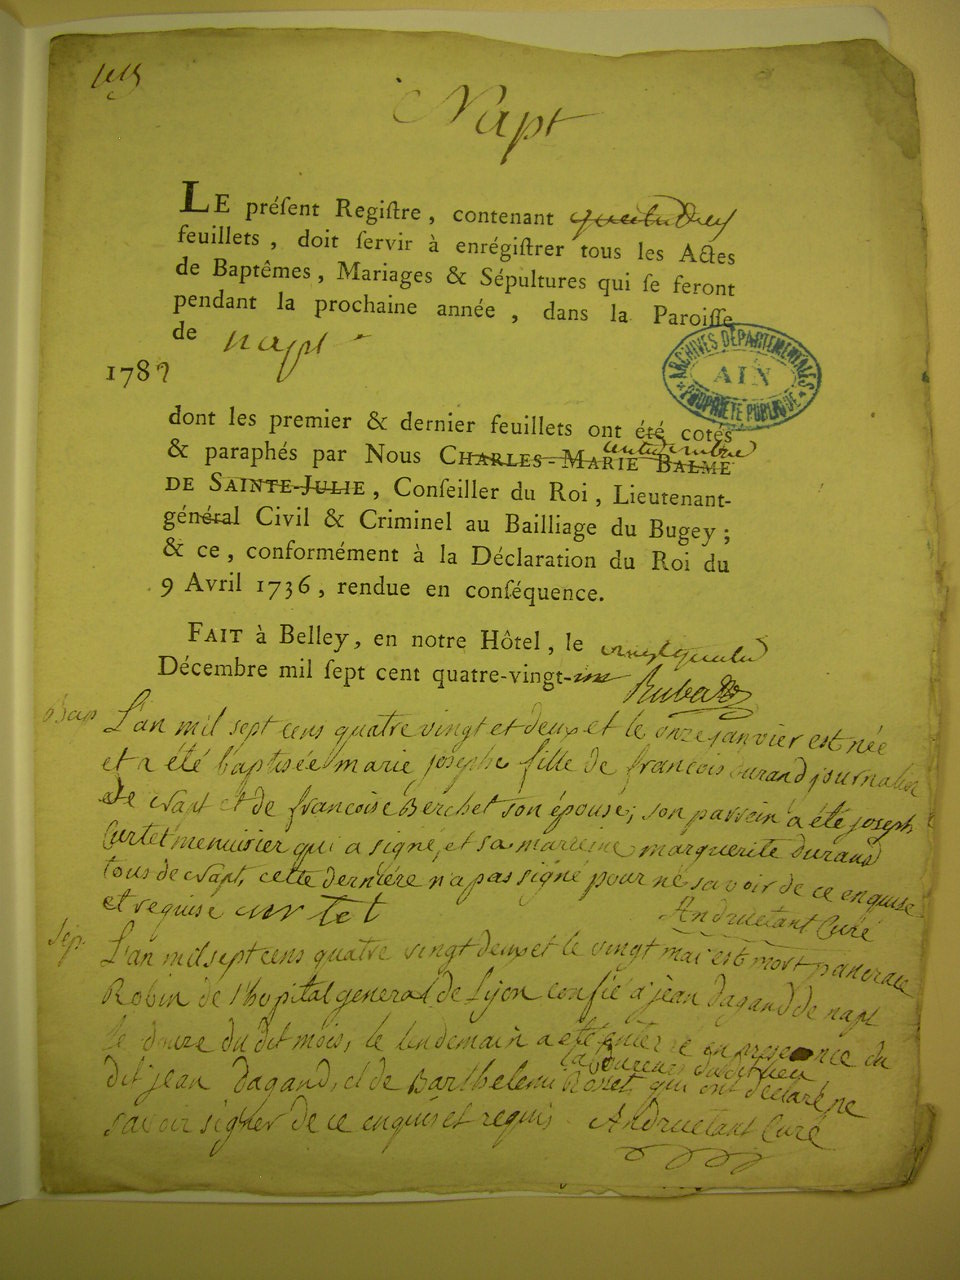 Napt
LE préſent Regiſtre, contenant
feuillets, doit ſervir à enrégiſtrer tous les Actes
de Baptêmes, Mariages & Sépultures qui ſe feront
pendant la prochaine année, dans la Paroiſſe
de napt
1782
ARCHIVES DÉPARTEMENTALES
AIN
PROPRIÉTÉ PUBLIQUE
dont les premier & dernier feuillets ont été cotés
& paraphés par Nous CHARLES-MARIE BALME
DE SAINTE-JULIE, Conſeiller du Roi, Lieutenant-
général Civil & Criminel au Bailliage du Bugey;
& ce, conformément à la Déclaration du Roi du
9 Avril 1736, rendue en conſéquence.
FAIT à Belley, en notre Hôtel, le
Décembre mil ſept cent quatre-vingt-un
Bap L'an mil sept cens quatre vingt et deux et le onze janvier est née
et a été baptisée marie josephe fille de francois durand journalier
de Napt et de francoise Berchet son épouse; son parrein a été joseph
Curtet menuisier qui a signé, et sa marreine marguerite durand
tous de Napt, cette derniére n'a pas signé pour ne savoir de ce enquise
et requise curtet Andruetant Curé
Sep. L'an mil sept cens quatre vingt deux et le vingt mai est mort pancrace
Robin de l'hopital general de Lyon confié a jean dagand de napt
le douze du dit mois, le lendemain a eté enterré en presence du
dit jean dagand, et de Barthelemi Rosset laboureurs dudit lieu qui ont déclaré ne
savoir signer de ce enquis et requis Andruetant Curé